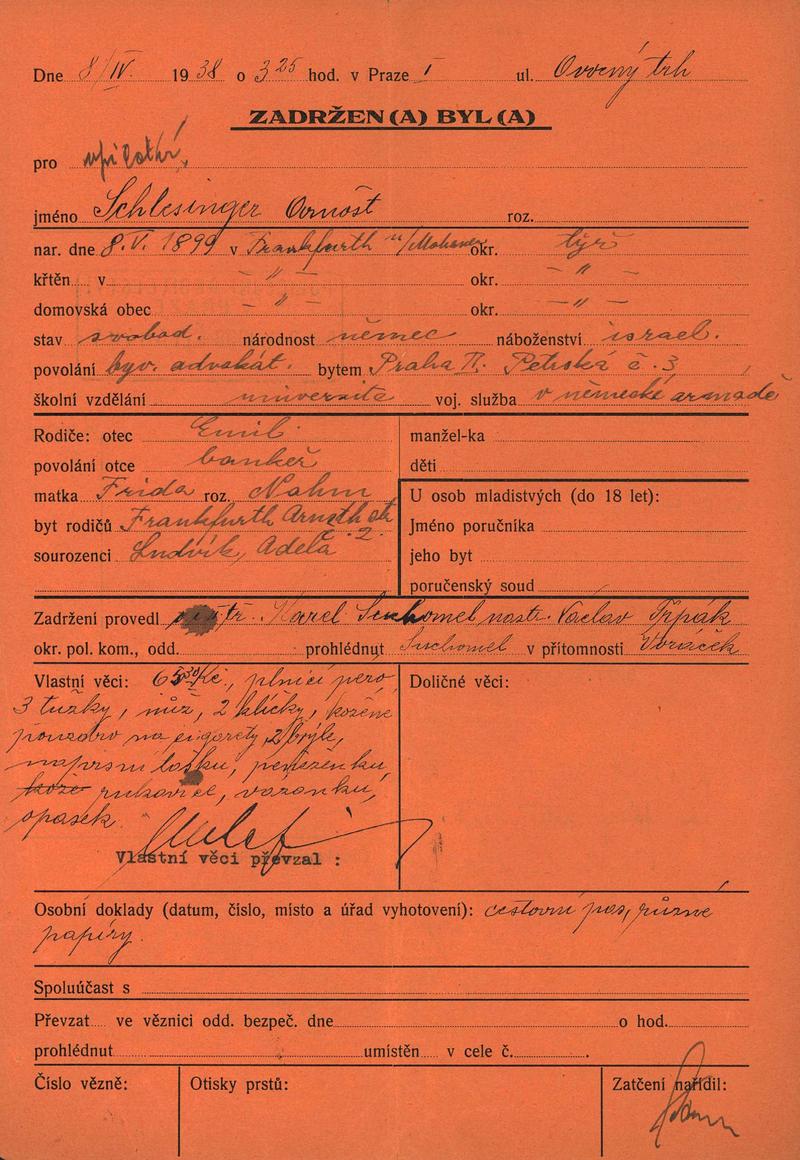 Dne 8/IV. 1938 o 3 25 hod. v Praze I ul. Ovocný trh
ZADRŽEN(A) BYL(A)
pro
jméno Schlesinger Arnošt roz.
nar. dne 8.V. 1899 v Frankfurth n/Mohanem okr. týž
křtěn v – " – okr. – " –
domovská obec – " – okr. – " –
stav svobod. národnost němec náboženství israel.
povolání býv. advokát. bytem Praha II. Petrská č. 3
školní vzdělání universita voj. služba v německé armádě
Rodiče: otec Emil
manžel-ka
povolání otce bankéř
děti
matka Frida roz. Nahm
U osob mladistvých (do 18 let):
byt rodičů Frankfurth
Jméno poručníka
sourozenci Ludvík, Adela
jeho byt
poručenský soud
Zadržení provedl Karel Suchomel nastr. Václav Trpák
okr. pol. kom., odd. prohlédnut Suchomel v přítomnosti Voráček
Vlastní věci: Kč, plnicí pero,
3 tužky, nůž, 2 klíčky, kožené
pouzdro na cigarety, 2 brýle,
náprsní tašku, peněženku,
kože rukavice, vázanku,
opasek.
Vlastní věci převzal :
Doličné věci:
Osobní doklady (datum, číslo, místo a úřad vyhotovení): cestovní pas, různé
papíry.
Spoluúčast s
Převzat ve věznici odd. bezpeč. dne o hod.
prohlédnut umístěn v cele č.
Číslo vězně:
Otisky prstů:
Zatčení nařídil: